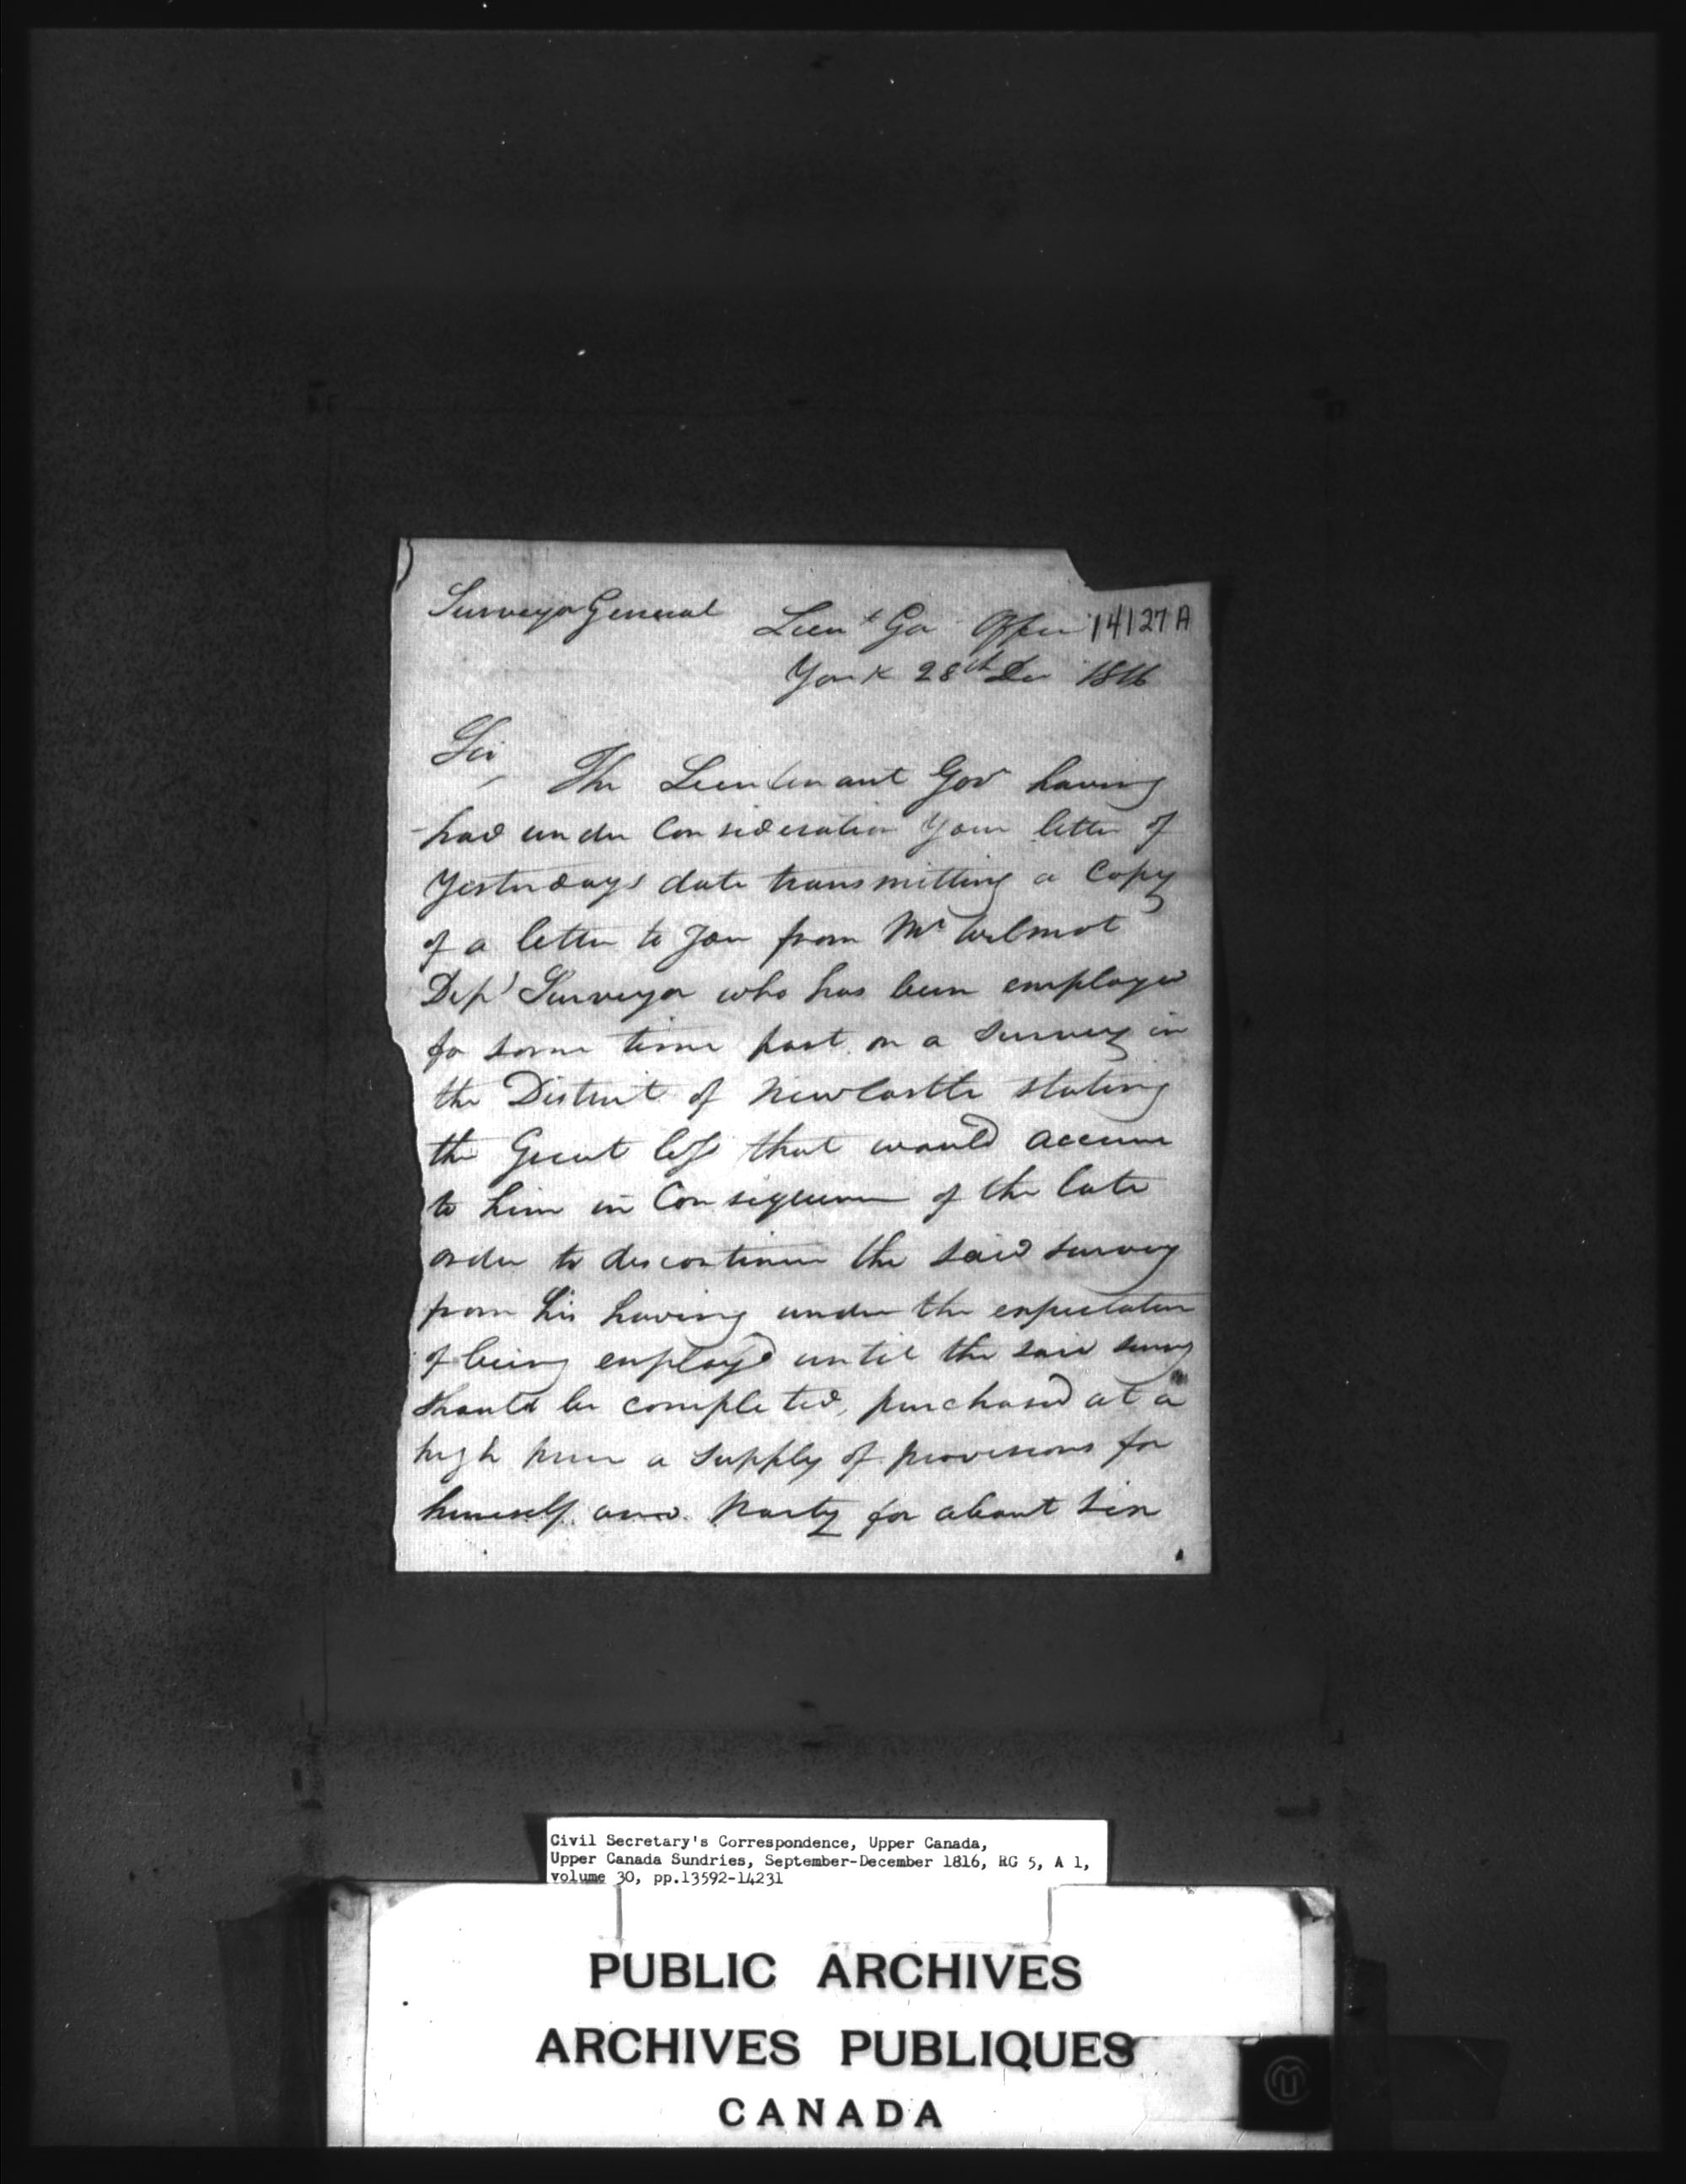 Surveyor General
Lieut Gov Office 14127 A
York 28th Dec 1816
Sir,
The Lieutenant Govr having
had under Consideration Your letter of
Yesterdays date transmitting a Copy
of a letter to you from Mr Wilmot
Depy Surveyor who has been employed
for some time past on a survey in
the District of Newcastle stating
the Great loss that would accrue
to him in Consequence of the late
order to discontinue the said survey
from his having under the expectation
of being employd until the said survey
should be completed, purchased at a
high price a supply of provisions for
himself and Party for about six
Civil Secretary's Correspondence, Upper Canada,
Upper Canada Sundries, September-December 1816, RG 5, A 1,
volume 30, pp.13592-14231
PUBLIC ARCHIVES
ARCHIVES PUBLIQUES
CANADA